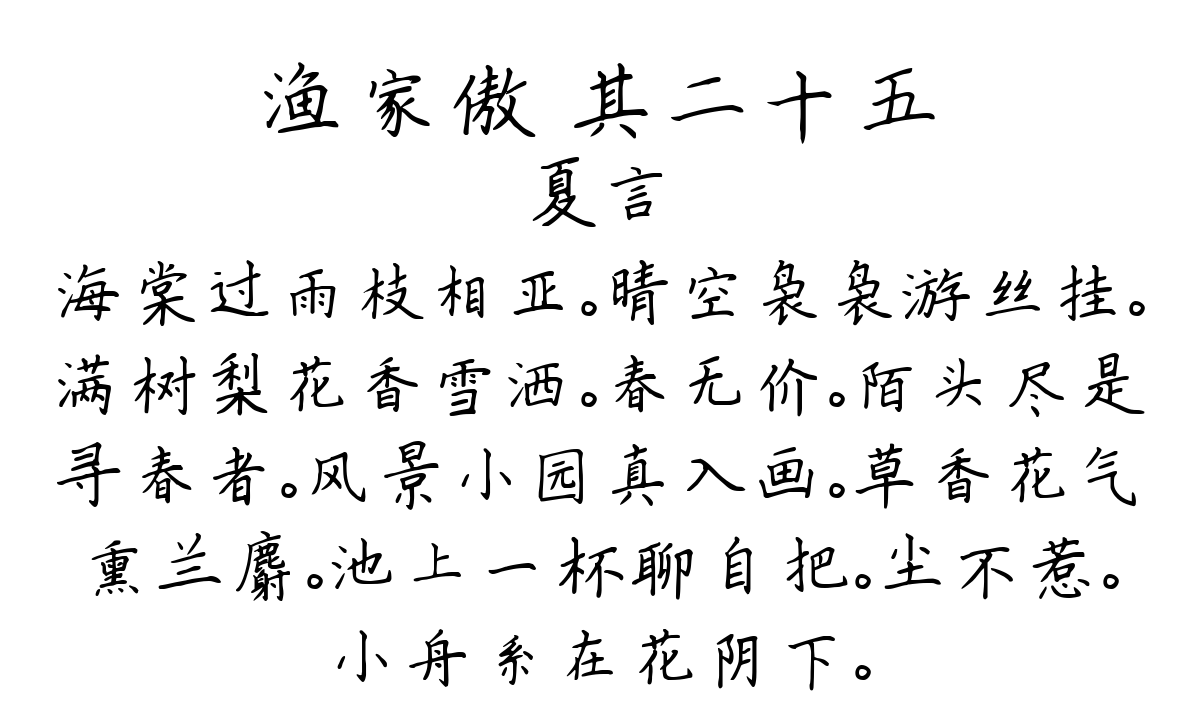 渔家傲 其二十五
夏言
海棠过雨枝相亚。晴空袅袅游丝挂。
满树梨花香雪洒。春无价。陌头尽是
寻春者。风景小园真入画。草香花气
熏兰麝。池上一杯聊自把。尘不惹。
小舟系在花阴下。